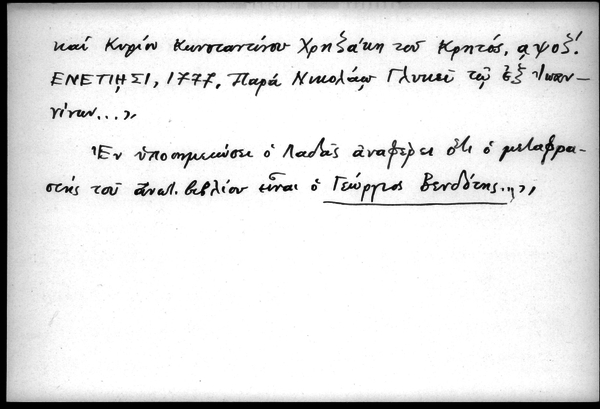 καί Κυρίου Κωνσταντίνου Χρηζάκη τοῦ Κρητός, αψοζ!
ΕΝΕΤΙΗΣΙ, 1777. Παρά Νικολάῳ Γλυκεῖ τῷ ἐξ Ἰωαν-
νίνων...»,
Ἐν ὑποσημειώσει ὁ Λαδᾶς ἀναφέρει ὅτι ὁ μεταφρα-
στής τοῦ ἀνωτ. βιβλίου εἶναι ὁ Γεώργιος Βενδότης..»,